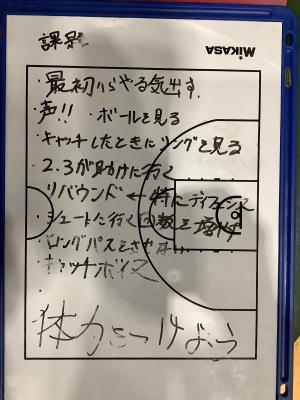 課題
MIKASA
・最初からやる気出す
・声!! ・ボールを見る
・キャッチしたときにリングを見る
・2.3が助けに行く
・リバウンド←特にディフェンス
・シュートに行く回数を増やす
・ロングパスをさせない
・キャッチボイス
・
体力をつけよう